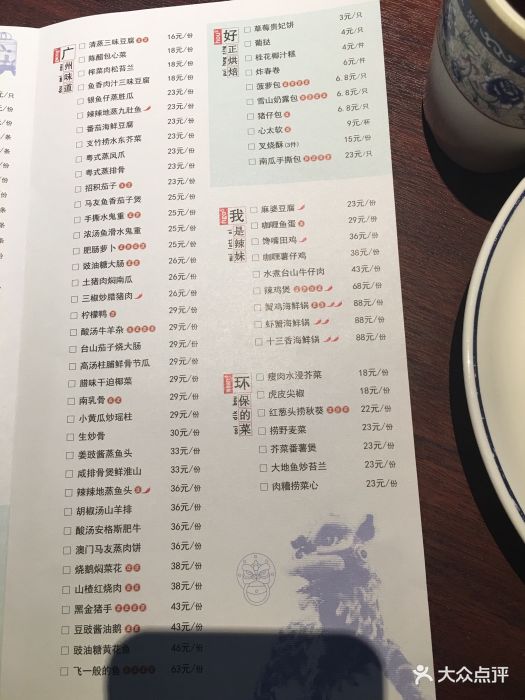 广州味道
清蒸三味豆腐 16元/份
陈醋包心菜 18元/份
榨菜肉松苔兰 18元/份
鱼香肉汁三味豆腐 18元/份
银鱼仔蒸胜瓜 23元/份
辣辣地蒸九肚鱼 23元/份
番茄海鲜豆腐 23元/份
支竹捞水东芥菜 23元/份
粤式蒸凤爪 23元/份
粤式蒸排骨 23元/份
招积茄子 23元/份
马友鱼香茄子煲 25元/份
手撕水鬼重 25元/份
浓汤鱼滑水鬼重 25元/份
肥肠萝卜 25元/份
豉油糖大肠 26元/份
土猪肉焖南瓜 26元/份
三椒炒腊猪肉 26元/份
柠檬鸭 29元/份
酸汤牛羊杂 29元/份
台山茄子烧大肠 29元/份
高汤柱脯鲜骨节瓜 29元/份
腊味干迫椰菜 29元/份
南乳骨 29元/份
小黄瓜炒瑶柱 29元/份
生炒骨 30元/份
姜豉酱蒸鱼头 33元/份
咸排骨煲鲜淮山 33元/份
辣辣地蒸鱼头 36元/份
胡椒汤山羊排 36元/份
酸汤安格斯肥牛 36元/份
澳门马友蒸肉饼 36元/份
烧鹅焖菜花 38元/份
山楂红烧肉 38元/份
黑金猪手 43元/份
豆豉酱油鹅 43元/份
豉油糖黄花鱼 46元/份
飞一般的鱼 63元/份
好正烘焙
草莓贵妃饼 3元/只
葡挞 4元/只
桂花椰汁糕 4元/件
炸春卷 6元/件
菠萝包 6.8元/只
雪山奶露包 6.8元/只
猪仔包 6.8元/只
心太软 9元/杯
叉烧酥(3件) 15元/份
南瓜手撕包 23元/只
我是辣妹
麻婆豆腐 23元/份
咖喱鱼蛋 29元/份
馋嘴田鸡 36元/份
咖喱薯仔鸡 38元/份
水煮台山牛仔肉 43元/份
辣鸡煲 68元/份
蟹鸡海鲜锅 88元/份
虾蟹海鲜锅 88元/份
十三香海鲜锅 88元/份
环保的菜
瘦肉水浸芥菜 18元/份
虎皮尖椒 18元/份
红葱头捞秋葵 22元/份
捞野麦菜 23元/份
芥菜番薯煲 23元/份
大地鱼炒苔兰 23元/份
肉糟捞菜心 23元/份
大众点评